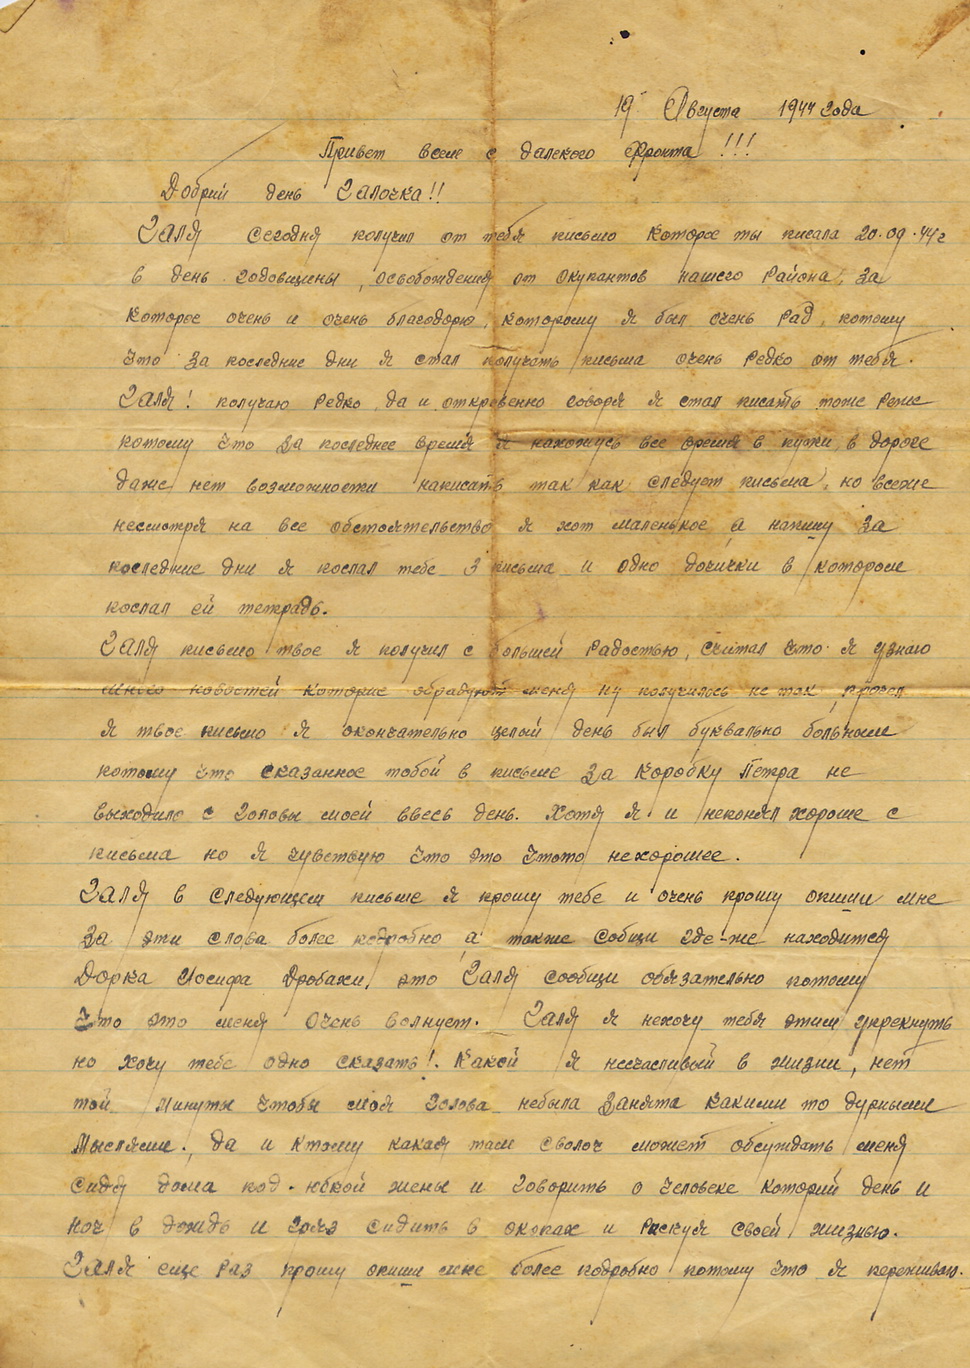 19 Августа 1944 года
Привет всем с далекого фронта!!!
Добрий день Галочка!!
Галя сегодня получил от тебя письмо которое ты писала 20.09.44г
в день годовщины, освобождения от окупантов нашего района, за
которое очень и очень благодорю, которому я был очень рад, потому
что за последние дни я стал получать письма очень редко от тебя.
Галя! получаю редко, да и откровенно говоря я стал писать тоже реже
потому что за последнее время я нахожусь все время в пути, в дороге
даже нет возможности написать так как следует письма, но всеже
несмотря на все обстоятельство я хот маленькое, а напишу за
последние дни я послал тебе 3 письма и одно дочички в котором
послал ей тетрадь.
Галя письмо твое я получил с большей радостью, считал что я узнаю
много новостей которие обрадуют меня ну получилось не так, прочел
я твое письмо я окончательно целой день был буквально больным
потому что сказанное тобой в письме за коробку Петра не
выходило с головы моей ввесь день. Хотя я и непонял хороше с
письма но я чувствую что это чтото нехорошее.
Галя в следующем письме я прошу тебе и очень прошу опиши мне
за эти слова более подробно, а также собщи где-же находится
Дорка Иосифа Дробахи, это Галя сообщи обязательно потому
что это меня очень волнует. Галя я нехочу тебя этим упрекнуть
но хочу тебе одно сказать! Какой я несчасливый в жизни, нет
той минуты чтобы моя голова небыла занята какими то дурными
мыслями, да и ктому какая там сволоч может обсуждать меня
сидя дома под юбкой жены и говорить о человеке которий день и
ноч в дождь и гряз сидить в окопах и рискуя своей жизнью.
Галя еще раз прошу опиши мне более подробно потому что я переживаю.